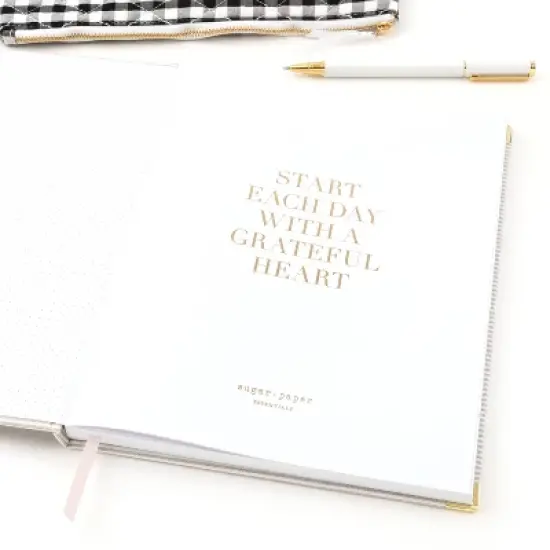 START
EACH DAY
WITH A
GRATEFUL
HEART
sugar + paper
ESSENTIALS